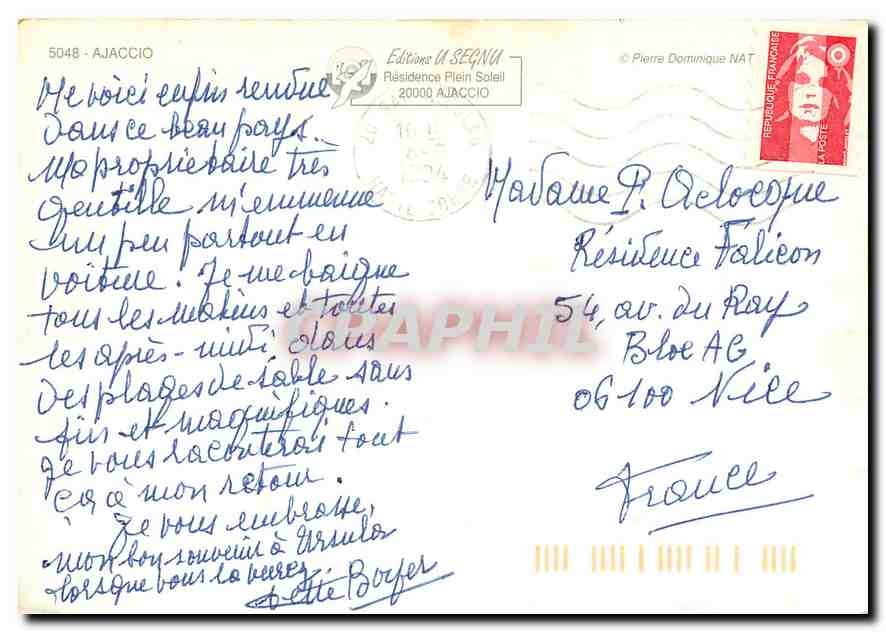 5048 - AJACCIO
Editions U SEGNU
Résidence Plein Soleil
20000 AJACCIO
© Pierre Dominique NAT
REPUBLIQUE FRANÇAISE
LA POSTE
Me voici enfin rendue
dans ce beau pays.
Ma propriétaire très
gentille m'emmene
un peu partout en
voiture. Je me baigne
tous les matins et toutes
les après-midi dans
des plages de sable sans
fin et magnifiques.
Je vous raconterai tout
ça à mon retour.
Je vous embrasse,
mon bon souvenir à Ursula
lorsque vous la verrez
Boyer
Madame P. Aclocque
Résidence Falicon
54, av. du Ray
Bloc AG
06100 Nice
France
CPAPHIL